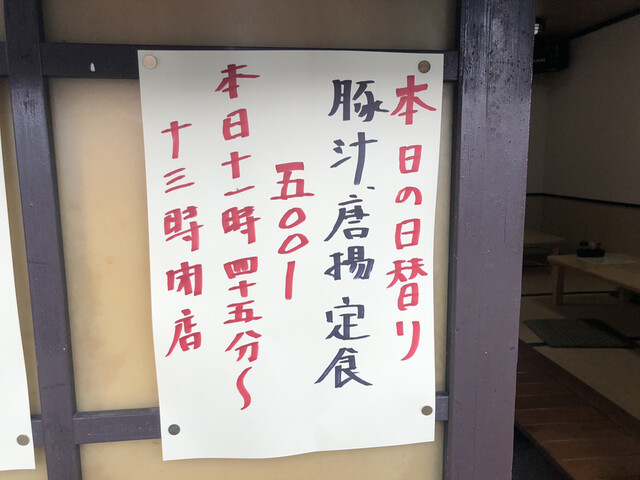 本日の日替り
豚汁、唐揚定食
五〇〇ー
本日十一時四十五分〜
十三時閉店